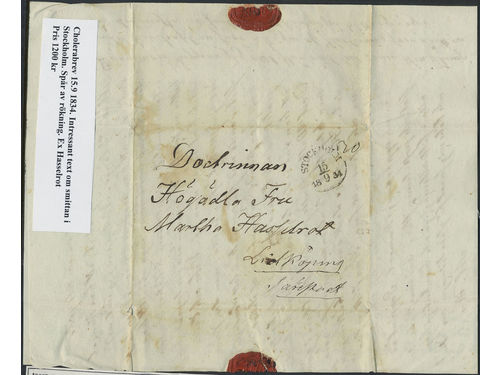 Cholerabrev 15.9 1834. Intressant text om smittan i
Stockholm. Spår av rökning. Ex Hasselrot
Pris 1200 kr
STOCKHOLM
15
9
1834
Doctrinnan
Högädla Fru
Martha Hasselrot
Lidköping